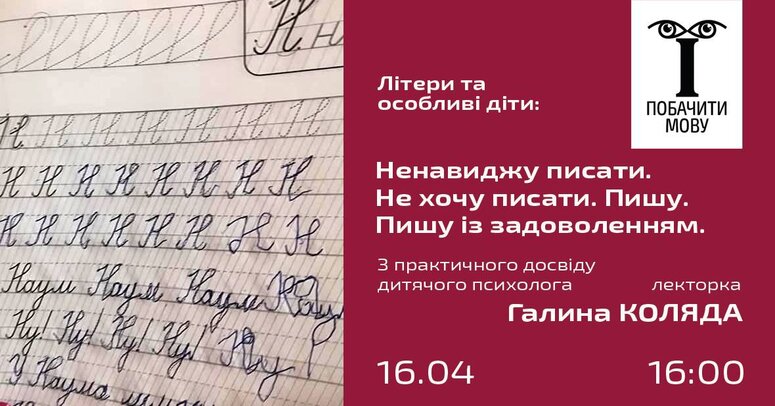 Н н
Н Н Н Н Н Н Н Н
Н Н Н Н Н Н Н Н
Н Н Н Н Н Н Н Н
Наум Наум Наум
Ну! Ну! Ну! Ну! Ну!
У Наума
Літери та
особливі діти:
ПОБАЧИТИ
МОВУ
Ненавиджу писати.
Не хочу писати. Пишу.
Пишу із задоволенням.
З практичного досвіду
дитячого психолога
лекторка
Галина КОЛЯДА
16.04
16:00